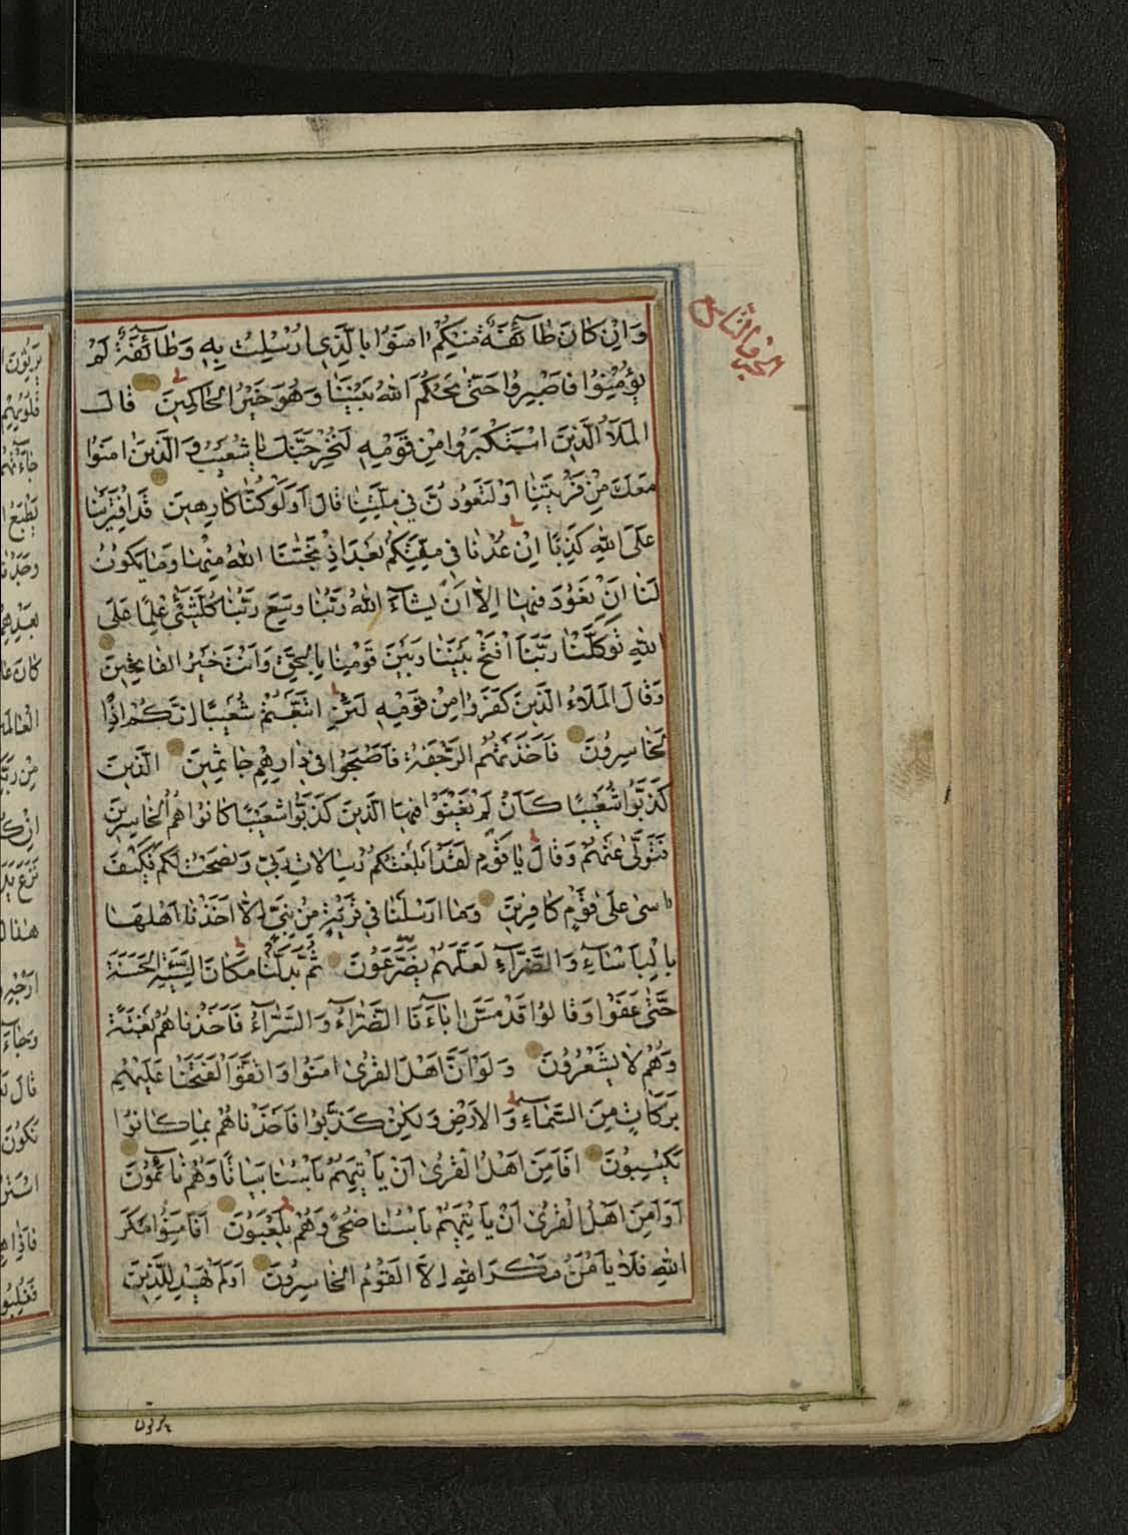 وَاِنْ كَانَ طَائِفَةٌ مِنْكُمْ اٰمَنُوا بِالَّذِي اُرْسِلْتُ بِهِ وَطَائِفَةٌ لَمْ
يُؤْمِنُوا فَاصْبِرُوا حَتّٰى يَحْكُمَ اللّٰهُ بَيْنَنَا وَهُوَ خَيْرُ الْحَاكِمِينَ قَالَ
الْمَلَاُ الَّذِينَ اسْتَكْبَرُوا مِنْ قَوْمِهِ لَنُخْرِجَنَّكَ يَا شُعَيْبُ وَالَّذِينَ اٰمَنُوا
مَعَكَ مِنْ قَرْيَتِنَا اَوْ لَتَعُودُنَّ فِي مِلَّتِنَا قَالَ اَوَلَوْ كُنَّا كَارِهِينَ قَدِ افْتَرَيْنَا
عَلَى اللّٰهِ كَذِبًا اِنْ عُدْنَا فِي مِلَّتِكُمْ بَعْدَ اِذْ نَجّٰنَا اللّٰهُ مِنْهَا وَمَا يَكُونُ
لَنَا اَنْ نَعُودَ فِيهَا اِلَّا اَنْ يَشَاءَ اللّٰهُ رَبُّنَا وَسِعَ رَبُّنَا كُلَّ شَيْءٍ عِلْمًا عَلَى
اللّٰهِ تَوَكَّلْنَا رَبَّنَا افْتَحْ بَيْنَنَا وَبَيْنَ قَوْمِنَا بِالْحَقِّ وَاَنْتَ خَيْرُ الْفَاتِحِينَ
وَقَالَ الْمَلَاُ الَّذِينَ كَفَرُوا مِنْ قَوْمِهِ لَئِنِ اتَّبَعْتُمْ شُعَيْبًا اِنَّكُمْ اِذًا
لَخَاسِرُونَ فَاَخَذَتْهُمُ الرَّجْفَةُ فَاَصْبَحُوا فِي دَارِهِمْ جَاثِمِينَ الَّذِينَ
كَذَّبُوا شُعَيْبًا كَاَنْ لَمْ يَغْنَوْا فِيهَا الَّذِينَ كَذَّبُوا شُعَيْبًا كَانُوا هُمُ الْخَاسِرِينَ
فَتَوَلّٰى عَنْهُمْ وَقَالَ يَا قَوْمِ لَقَدْ اَبْلَغْتُكُمْ رِسَالَاتِ رَبِّي وَنَصَحْتُ لَكُمْ فَكَيْفَ
اٰسٰى عَلٰى قَوْمٍ كَافِرِينَ وَمَا اَرْسَلْنَا فِي قَرْيَةٍ مِنْ نَبِيٍّ اِلَّا اَخَذْنَا اَهْلَهَا
بِالْبَاْسَاءِ وَالضَّرَّاءِ لَعَلَّهُمْ يَضَّرَّعُونَ ثُمَّ بَدَّلْنَا مَكَانَ السَّيِّئَةِ الْحَسَنَةَ
حَتّٰى عَفَوْا وَقَالُوا قَدْ مَسَّ اٰبَاءَنَا الضَّرَّاءُ وَالسَّرَّاءُ فَاَخَذْنَاهُمْ بَغْتَةً
وَهُمْ لَا يَشْعُرُونَ وَلَوْ اَنَّ اَهْلَ الْقُرٰى اٰمَنُوا وَاتَّقَوْا لَفَتَحْنَا عَلَيْهِمْ
بَرَكَاتٍ مِنَ السَّمَاءِ وَالْاَرْضِ وَلٰكِنْ كَذَّبُوا فَاَخَذْنَاهُمْ بِمَا كَانُوا
يَكْسِبُونَ اَفَاَمِنَ اَهْلُ الْقُرٰى اَنْ يَاْتِيَهُمْ بَاْسُنَا بَيَاتًا وَهُمْ نَائِمُونَ
اَوَاَمِنَ اَهْلُ الْقُرٰى اَنْ يَاْتِيَهُمْ بَاْسُنَا ضُحًى وَهُمْ يَلْعَبُونَ اَفَاَمِنُوا مَكْرَ
اللّٰهِ فَلَا يَاْمَنُ مَكْرَ اللّٰهِ اِلَّا الْقَوْمُ الْخَاسِرُونَ اَوَلَمْ يَهْدِ لِلَّذِينَ
يرثون